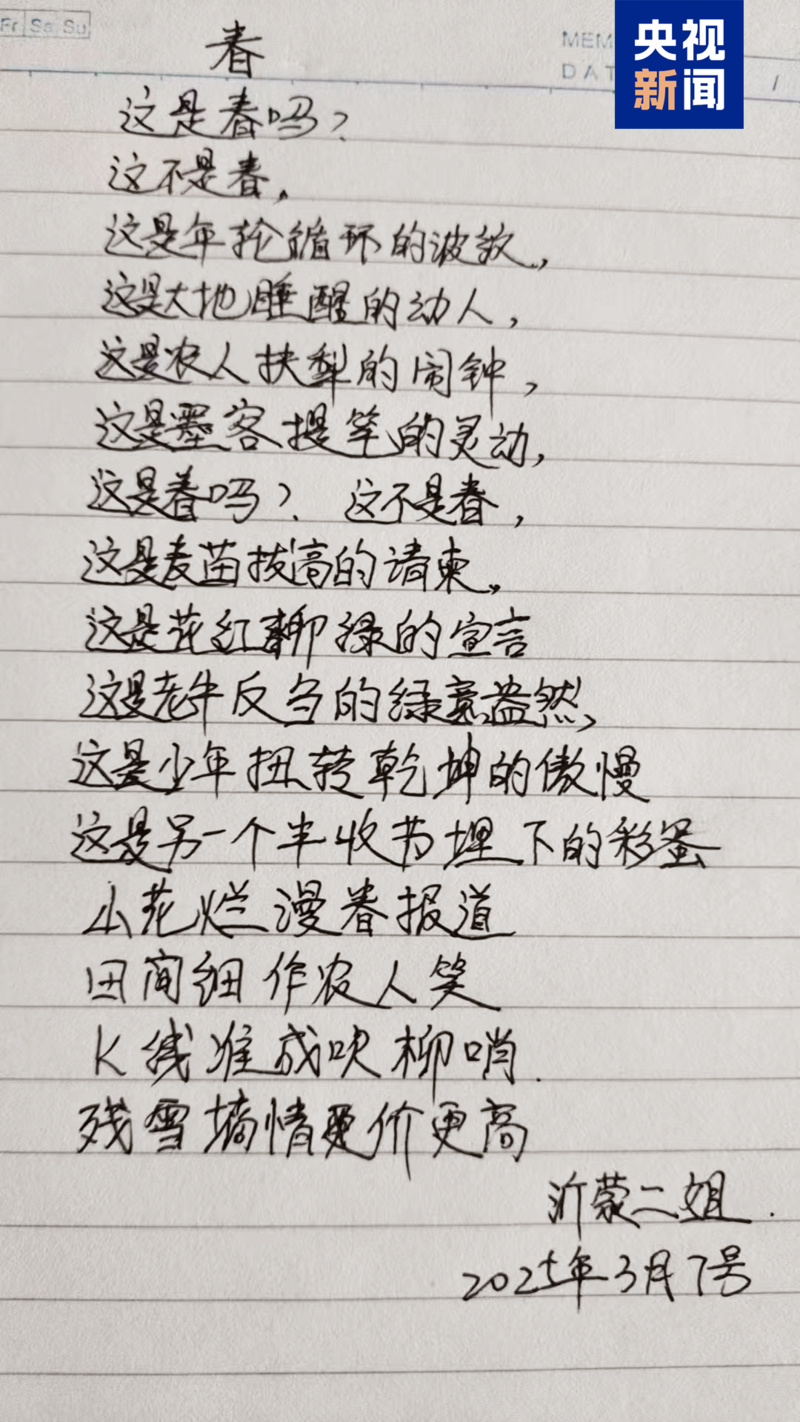 Fr Sa Su
MEM
DAT
央视
新闻
春
这是春吗？
这不是春，
这是年轮循环的波纹，
这是大地睡醒的动人，
这是农人扶犁的闹钟，
这是墨客提笔的灵动，
这是春吗？ 这不是春，
这是麦苗拔高的请柬，
这是花红柳绿的宣言
这是老牛反刍的绿意盎然，
这是少年扭转乾坤的傲慢
这是另一个丰收节埋下的彩蛋
山花烂漫春报道
田间细作农人笑
K线准成吹柳哨
残雪墒情更价更高
沂蒙二姐
2025年3月7号